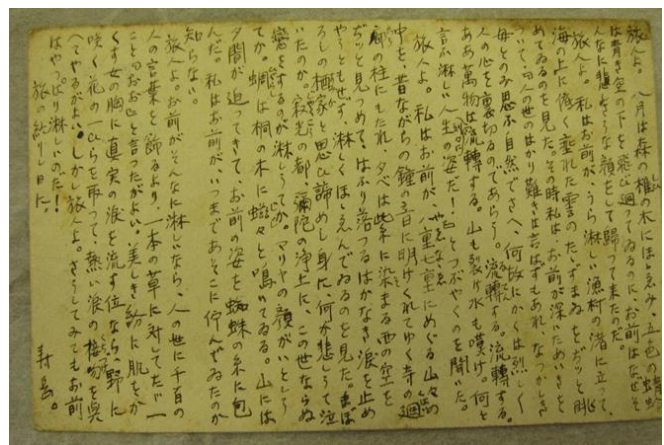 旅人よ。八月は森の樹の木にほゝゑみ、五色の蝶が
は青き空の下を飛び廻つてゐるのに、お前はなぜそ
んなに悲しさうな顔をして歸つて来たのだ。
旅人よ。私はお前が、うら淋しい漁村の渚に立つて、
海の上に低く垂れた雲のたゝずまゐを、ぢツと眺
めてゐるのを見た。その時私は、お前が深いためいきと
ついて、「人の世のはかり難きは言はずもあれ、なつかしき
母とのみ思ふ自然でさへ、何故にかくは烈しく
人の心を裏切るのであらう。流轉する。流轉する。
あゝ萬物は流轉する。山も裂け水も嘆け。何と
言ふ淋しい人生の姿だ!」とつぶやくのを聞いた。
旅人よ。私はお前が、八重七重にめぐる山々の
中を、昔ながらの鐘の音に明けくれてゆく寺の廻
廊の柱にもたれ、夕べは紫に染まる西の空を
ぢッと見つめて、はふり落つるはかなき涙を止め
やうともせず、淋しくほゝえんでゐるのを見た。まぼ
ろしの栖家と思ひ諦めし身に、何が悲しうて泣
いたのか。寂光の都、彌陀の浄土に、この世ならぬ
戀をするのが淋しうてか。マリヤの顔がいとしう
てか。蜩は桐の木に蜒々と鳴いてゐる。山には
夕闇が迫つてきて、お前の姿を蜘蛛の糸に包
んだ。私はお前が、いつまであそこに佇んでゐたのか
知らない。
旅人よ。お前がそんなに淋しいなら、人の世に千百の
人の言葉を飾るより、一本の草に対してたゞ一
こと「おお」と言つたがよい。美しき紗に肌をか
くす女の胸に真実の涙を流す位なら、野に
咲く花の一ひらを取つて、熱い涙の接吻を與
へてやるがよい。しかし旅人よ。さうしてみてもお前
はやつぱり淋しいのだ!
旅の終りし日に。
寿岳。